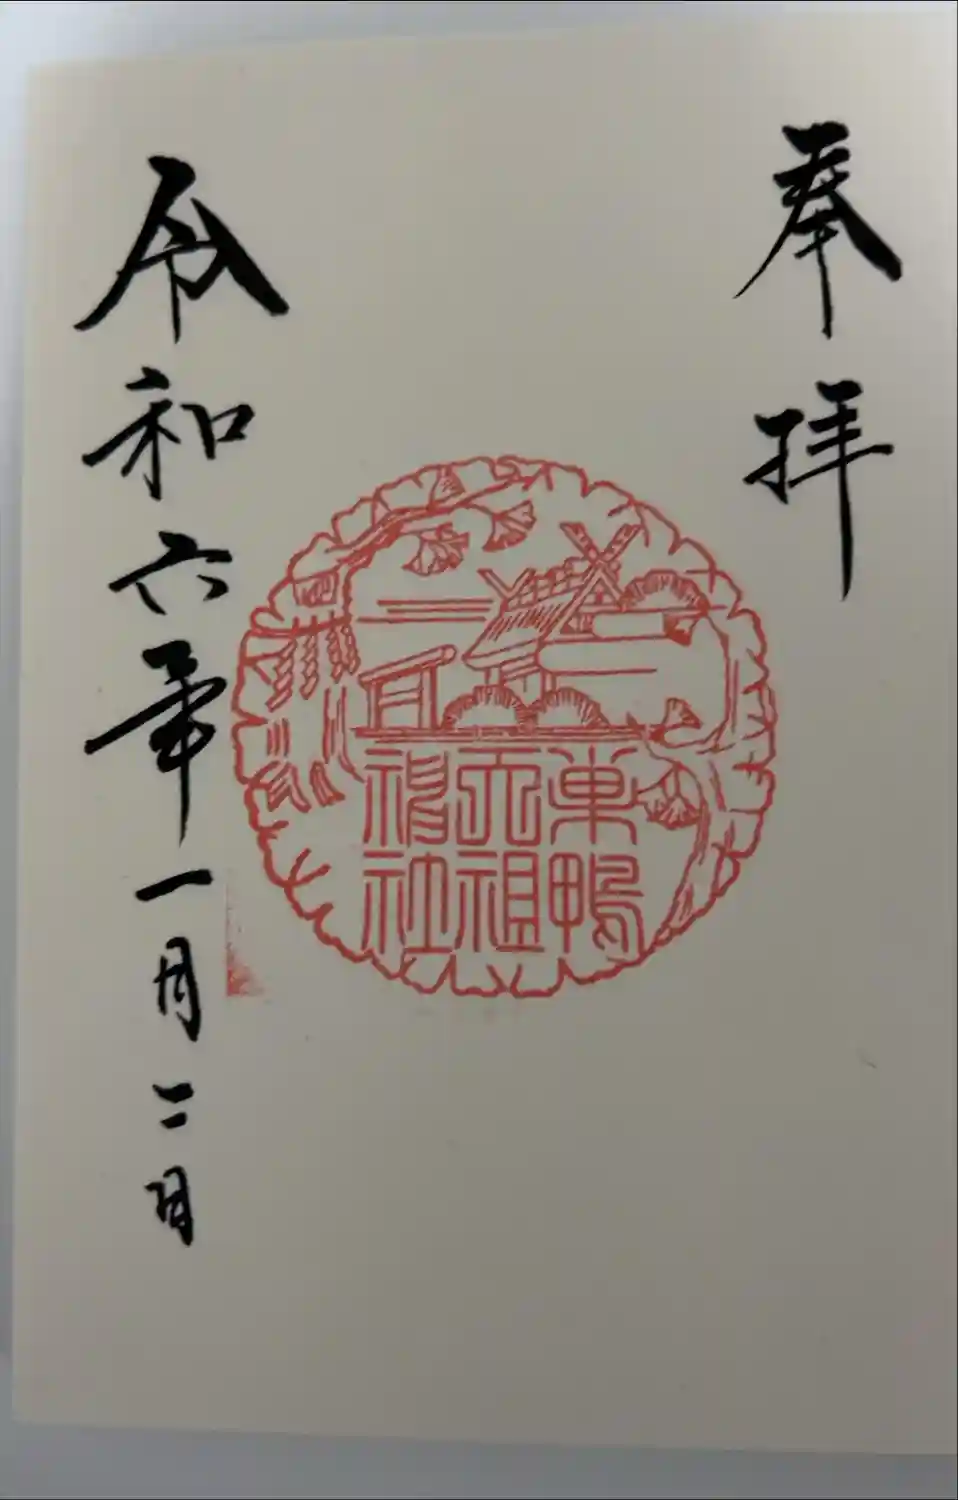 奉拝
巣鴨
天祖
神社
令和六年一月二日